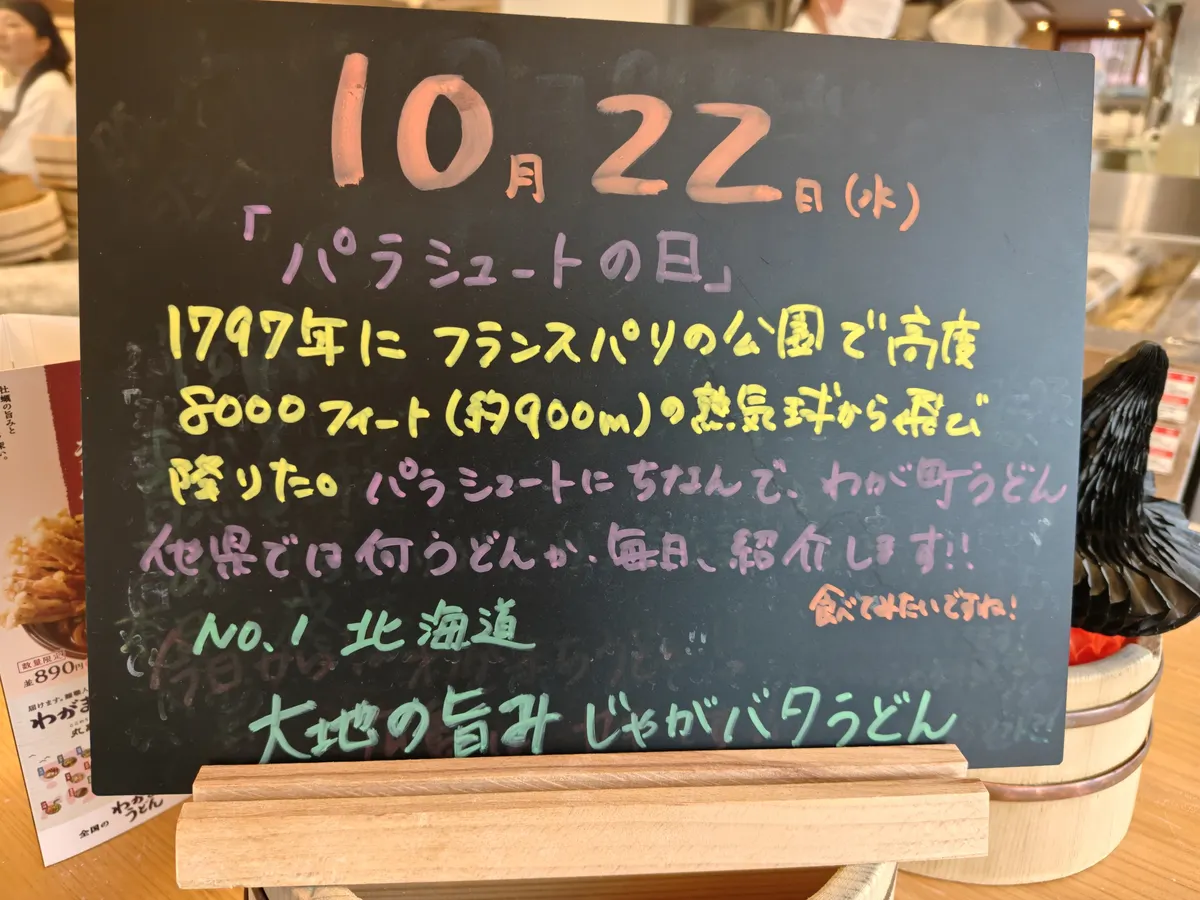 10月22日(水)
「パラシュートの日」
1797年にフランスパリの公園で高度
8000フィート(約900m)の熱気球から飛び
降りた。パラシュートにちなんで、わが町うどん
他県では何うどんか、毎日、紹介します!!
食べてみたいですね!
No.1 北海道
大地の旨み じゃがバタうどん
牡蠣の旨みと
数量限定
並890
届けます。麺職人
わがま
丸亀
全国の
わがま
うどん